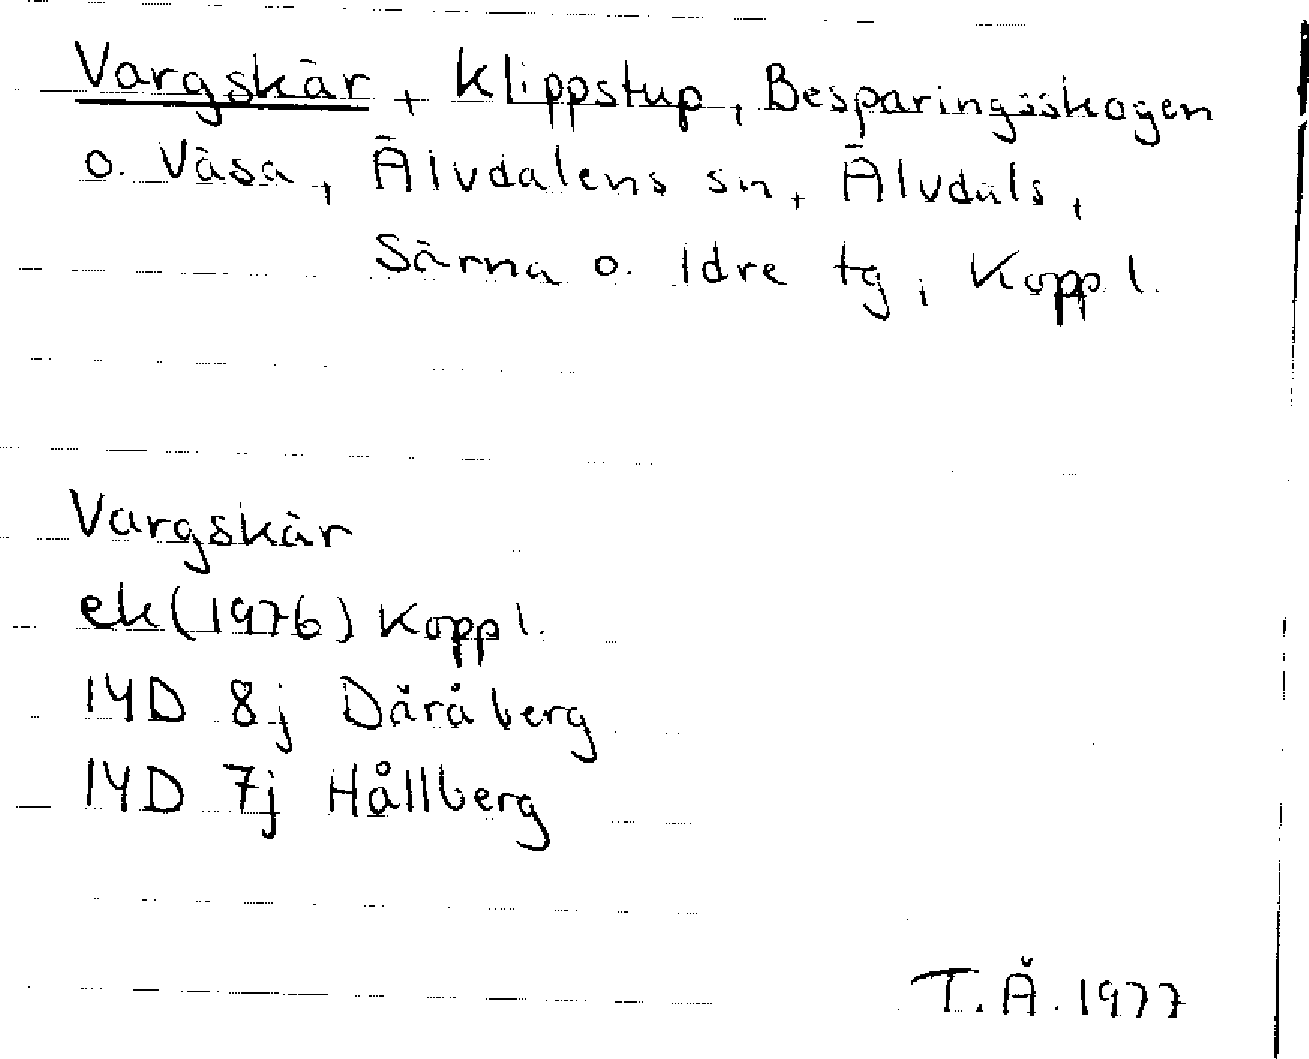 Vargskär, Klippstup, Besparingsskogen
o. Väsa, Älvdalens sn, Älvdals,
Särna o. Idre tg, Koppl.
Vargskär
ek (1976) Koppl.
14D 8j Dåråberg
14D 7j Hållberg
T.Å. 1977